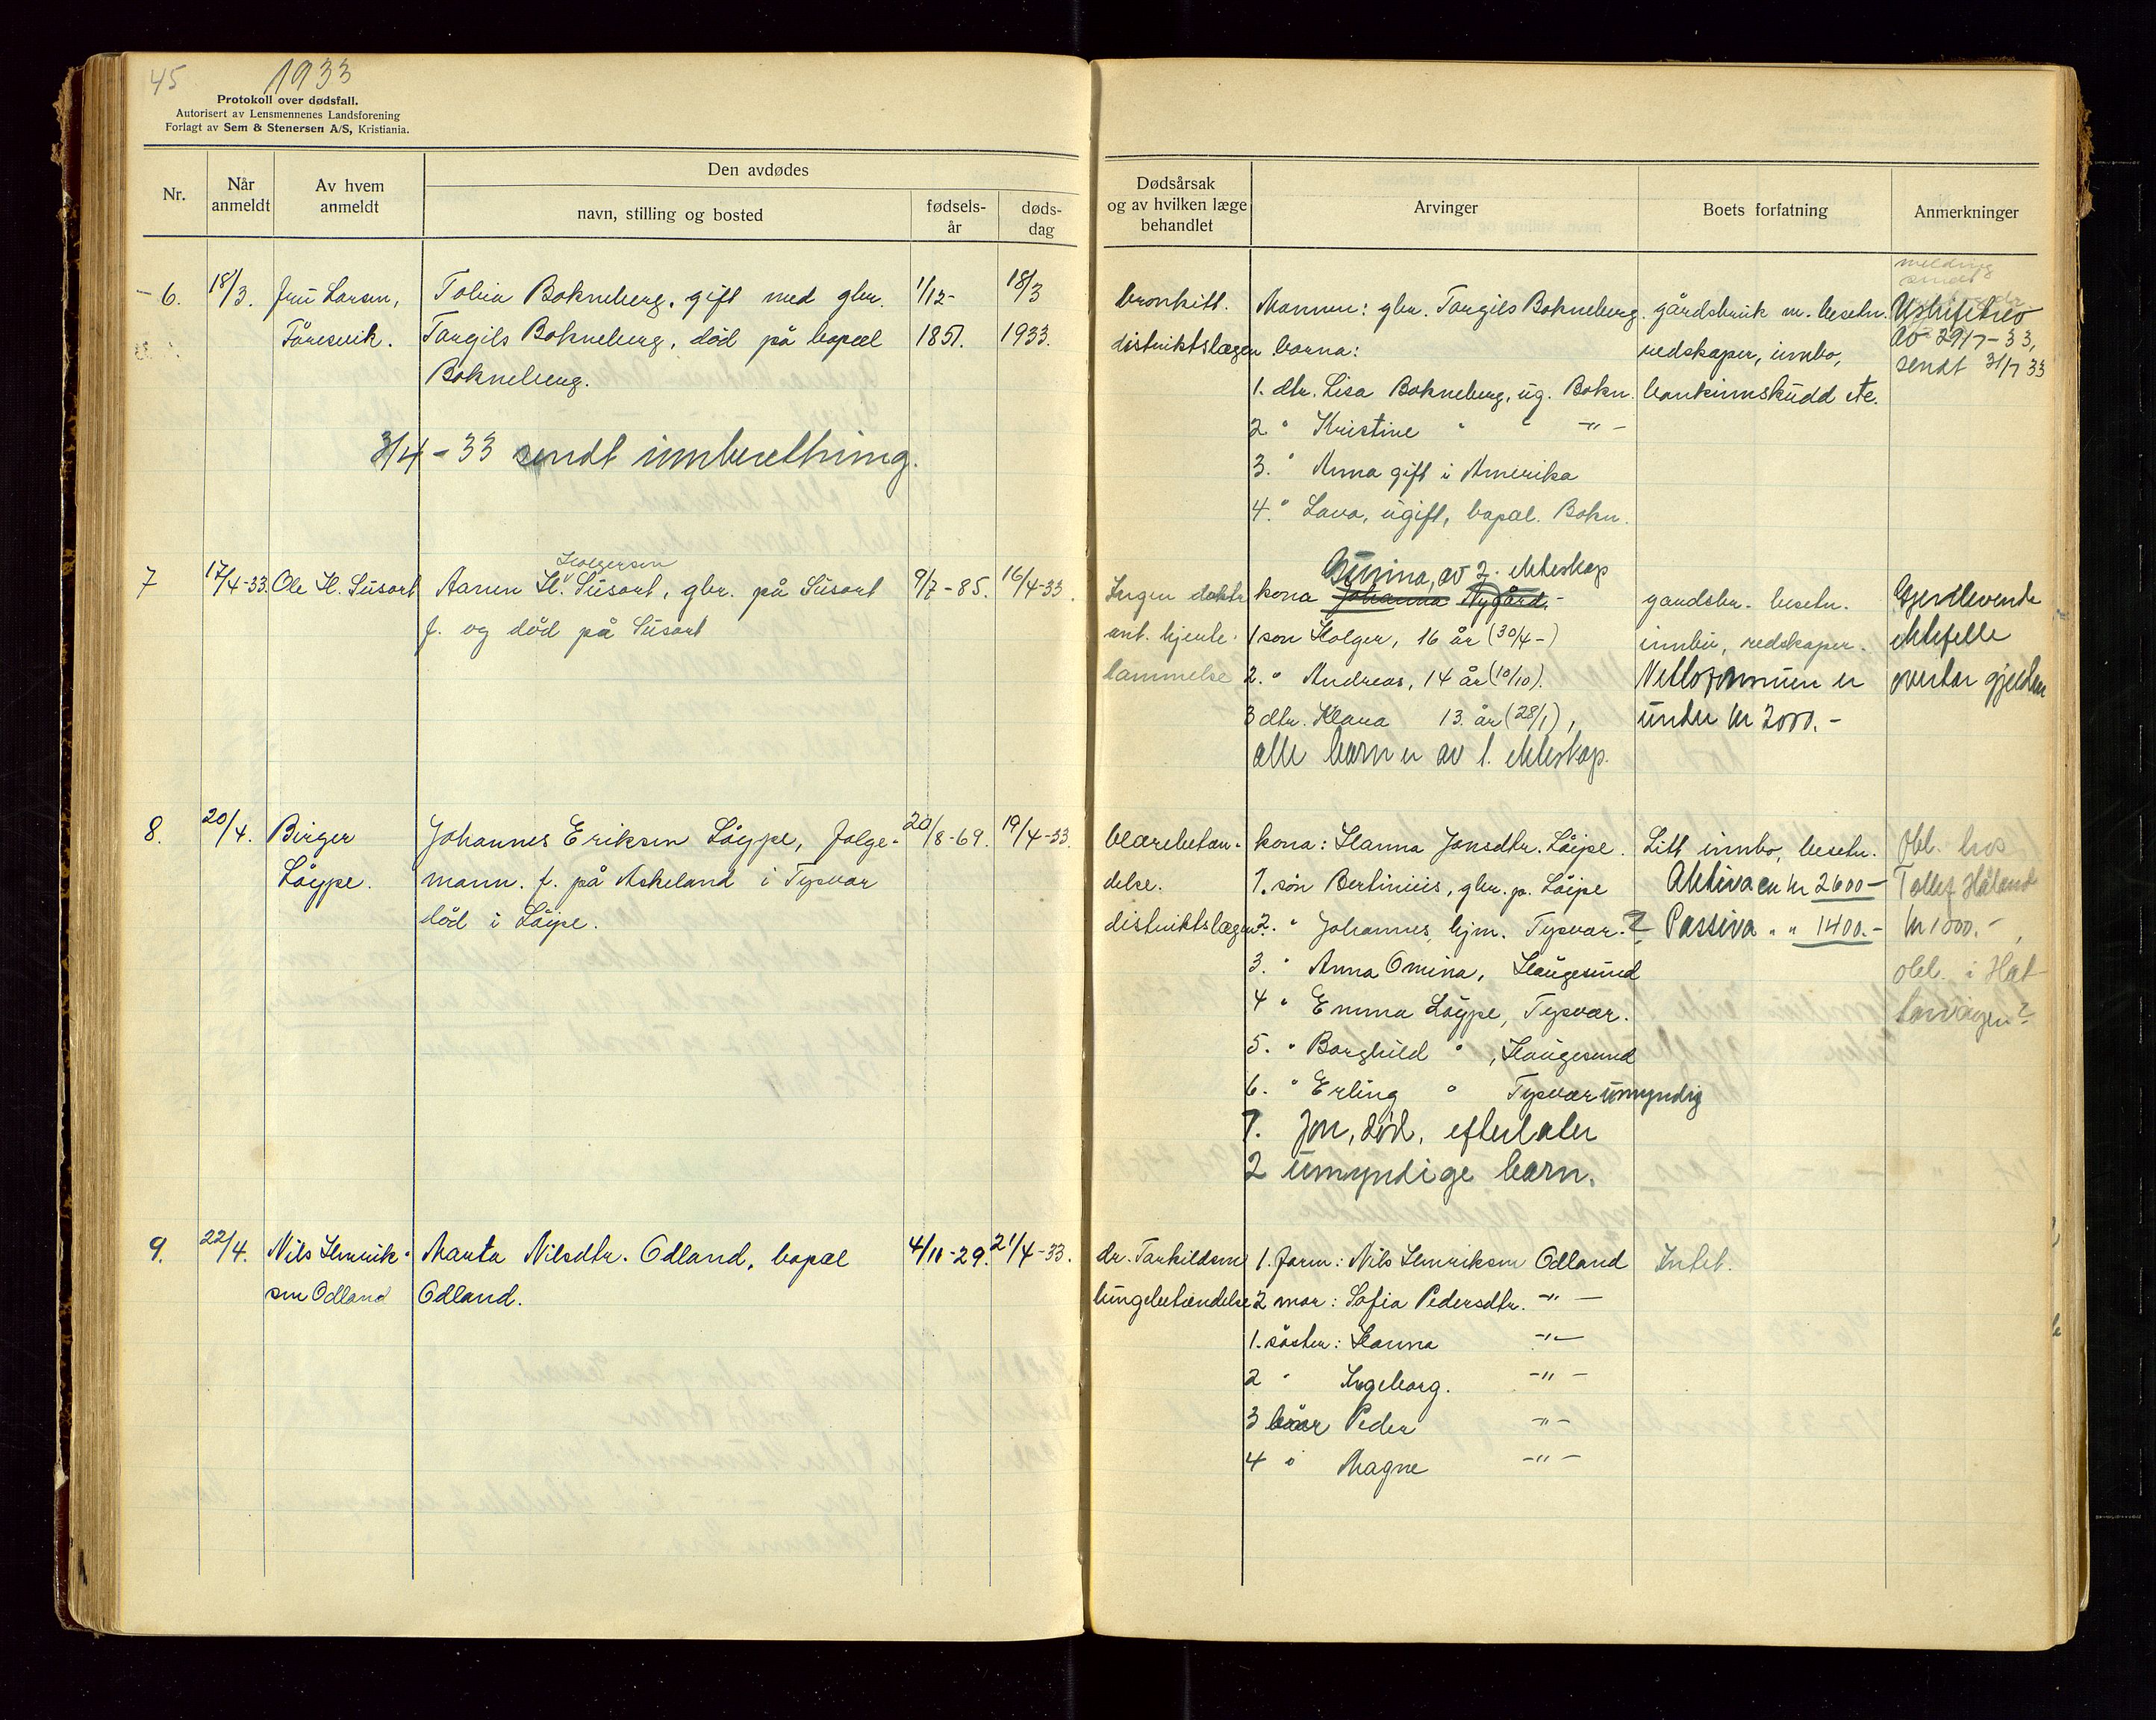 45
1933
Protokoll over dødsfall.
Autorisert av Lensmennenes Landsforening
Forlagt av Sem & Stenersen A/S, Kristiania.
Nr.
Når anmeldt
Av hvem anmeldt
Den avdødes
navn, stilling og bosted
fødsels-år
døds-dag
Dødsårsak og av hvilken læge behandlet
Arvinger
Boets forfatning
Anmerkninger
6. 18/3. fru Larsen, Tobia Bokneberg, gift med gbr. 1/12- 18/3
Føresvik. Torgils Bokneberg, død på bopæl 1851. 1933.
Bokneberg.
3/4-33 sendt innberethning.
bronkitt.
distriktslægen
Mannen: gbr. Torgils Bokneberg.
barna:
1. dtr. Lisa Bokneberg, ug. Bokn.
2 " Kristine " " -"-
3. " Anna gift i Amerika
4. " Lava, ugift, bopæl. Bokn.
gårdsbruk m. besetn.
redskaper, innbo,
bankinnskudd etc.
melding
sendt
Uskiftebrev
av 29/7-33,
sendt 31/7 33
7 17/4-33. Ole H. Susort Aanen H. Susort, gbr. på Susort 9/7-85. 16/4-33.
Holgersen
f. og død på Susort
Ingen doktr
ant. hjerte-
lammelse
Gunina, av 2. ekteskap
kona Johanna Nygård.-
1 søn Holger, 16 år (30/4-)
2. " Andreas, 14 år (10/10).
3 dtr. Klara 13. år (28/1),
alle barn er av 1. ekteskap.
gaardsbr. besetn.
innbu, redskaper.
Nettoformuen er
under kr 2000.-
Gjenlevende
ektefelle
overtar gjelden
8. 20/4. Birger Johannes Eriksen Løype, folge- 20/8-69. 19/4-33.
Løype. mann. f. på Askeland i Tysvær
død i Løipe.
blærebetæn-
delse.
distriktslægen
kona: Hanna Jonsdtr. Løipe.
1. søn Bertinius, gbr. p. Løipe
2. " Johannes, hjm. Tysvær.?
3. " Anna Omina, Haugesund
4 " Emma Løype, Tysvær.
5. " Borghild " , Haugesund
6. " Erling " Tysvær umyndig
7. Jon, død, efterlater
2 umyndige barn.
Litt innbo, besetn.
Aktiva ca kr 2600-
Passiva " " 1400.-
Obl. hos
Tollef Håland
kr 1000.-
obl. i
9. 22/4. Nils Henrik- Marta Nilsdtr. Odland, bopæl 4/11-29. 21/4-33.
sen Odland Odland.
dr. Torkildsen
lungebetændelse
1. farm: Nils Henriksen Odland
2 mor: Sofia Pedersdtr. -"-
1. søster: Hanna -"-
2 " Ingeborg. -"-
3 bror Peder -"-
4 " Magne -"-
Intet.